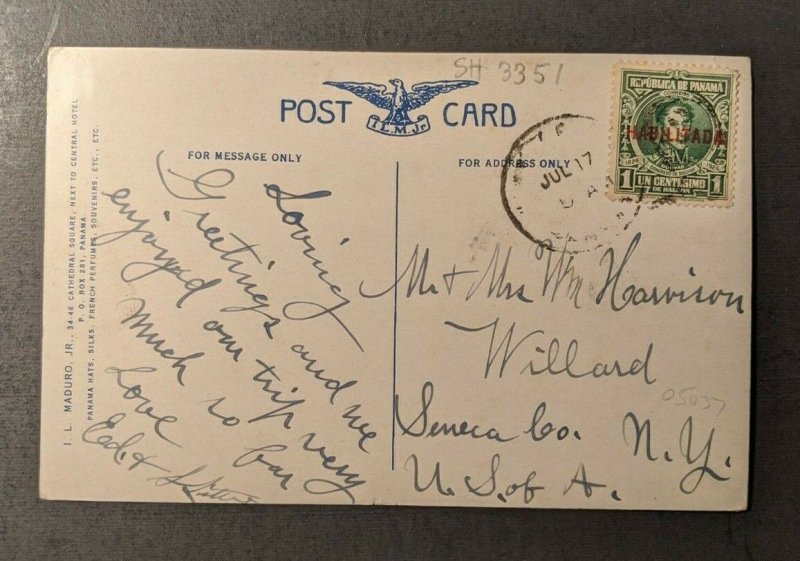 SH 3351
POST CARD
I.L.M. Jr.
FOR MESSAGE ONLY
FOR ADDRESS ONLY
I. L. MADURO, JR., 34-46 CATHEDRAL SQUARE, NEXT TO CENTRAL HOTEL
P. O. BOX 281, PANAMA
PANAMA HATS, SILKS, FRENCH PERFUMES, SOUVENIRS, ETC., ETC.
REPÚBLICA DE PANAMÁ
HABILITADA
1 UN CENTÉSIMO 1
DE BALBOA
JUL 17
Loving
Greetings and we
enjoyed our trip very
much so far
Love
Ed &
Mr & Mrs Wm Harrison
Willard
Seneca Co. N.Y.
U.S. of A.
05037